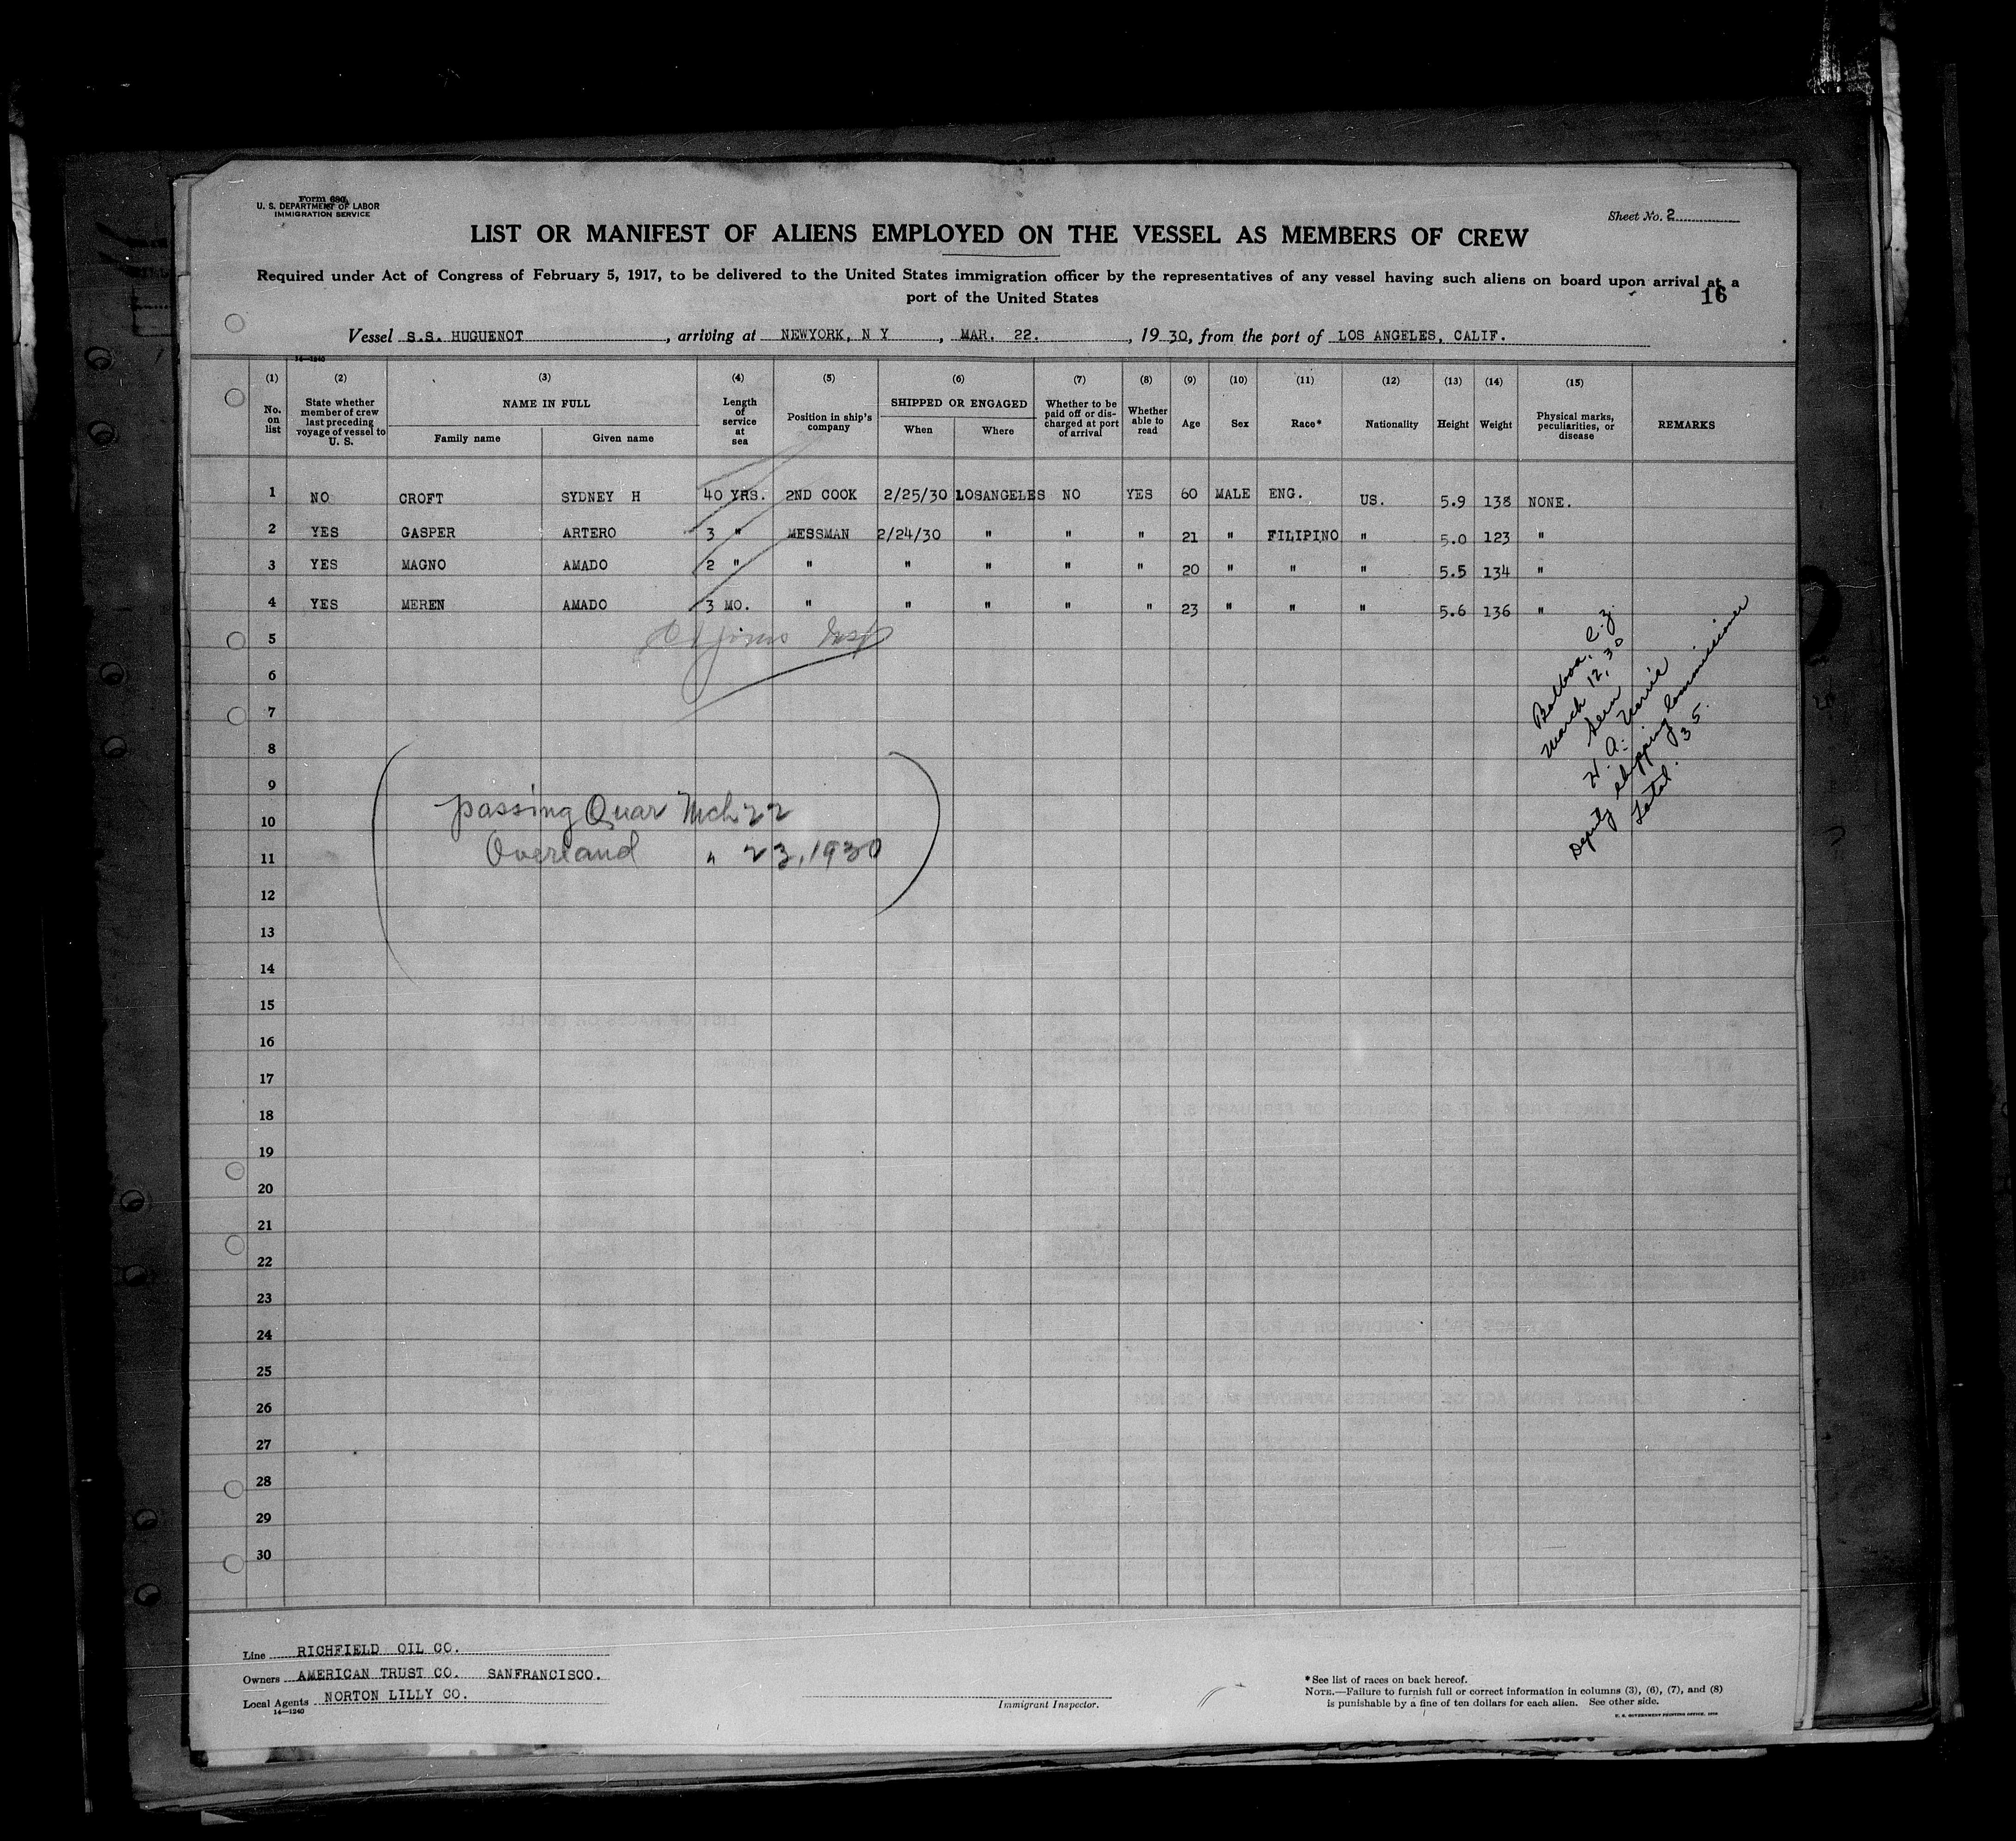 Form 680
U. S. DEPARTMENT OF LABOR
IMMIGRATION SERVICE
Sheet No. 2
LIST OR MANIFEST OF ALIENS EMPLOYED ON THE VESSEL AS MEMBERS OF CREW
Required under Act of Congress of February 5, 1917, to be delivered to the United States immigration officer by the representatives of any vessel having such aliens on board upon arrival at a
port of the United States
16
Vessel S.S. HUGUENOT, arriving at NEWYORK, N Y, MAR. 22., 19 30, from the port of LOS ANGELES, CALIF.
14—1240
(1) (2) (3) (4) (5) (6) (7) (8) (9) (10) (11) (12) (13) (14) (15)
No. on list
State whether member of crew last preceding voyage of vessel to U. S.
NAME IN FULL
Family name
Given name
Length of service at sea
Position in ship's company
SHIPPED OR ENGAGED
When
Where
Whether to be paid off or discharged at port of arrival
Whether able to read
Age
Sex
Race*
Nationality
Height
Weight
Physical marks, peculiarities, or disease
REMARKS
1 NO CROFT SYDNEY H 40 YRS. 2ND COOK 2/25/30 LOSANGELES NO YES 60 MALE ENG. US. 5.9 138 NONE.
2 YES GASPER ARTERO 3 " MESSMAN 2/24/30 " " " 21 " FILIPINO " 5.0 123 "
3 YES MAGNO AMADO 2 " " " " " " 20 " " " 5.5 134 "
4 YES MEREN AMADO 3 MO. " " " " " 23 " " " 5.6 136 "
5
6
7
8
9
10
11
12
13
14
15
16
17
18
19
20
21
22
23
24
25
26
27
28
29
30
passing Quar Mch 22
Overland " 23, 1930
Balboa, C.Z.
March 12, 30
Seen
H. A.
Deputy Shipping Commissioner
Total. 35.
Line RICHFIELD OIL CO.
Owners AMERICAN TRUST CO. SANFRANCISCO.
Local Agents NORTON LILLY CO.
14—1240
Immigrant Inspector.
*See list of races on back hereof.
NOTE.—Failure to furnish full or correct information in columns (3), (6), (7), and (8)
is punishable by a fine of ten dollars for each alien. See other side.